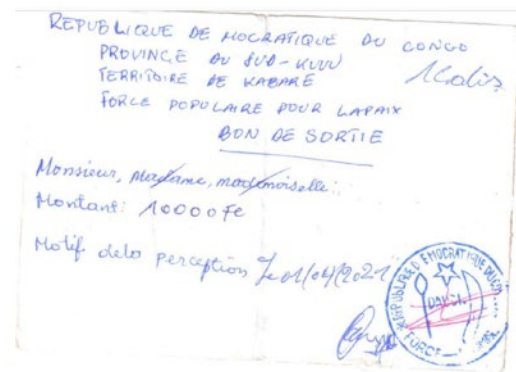 REPUBLIQUE DE MOCRATIQUE DU CONGO
PROVINCE DU SUD-KUVU
TERRITOIRE DE KABARE
FORCE POPULAIRE POUR LAPAIX
BON DE SORTIE
Monsieur, madame, mademoiselle:
Montant: 10000 Fc
Motif dela perception Le 01/04/2021
REPUBLIQUE DEMOCRATIQUE DU CO
FORCE